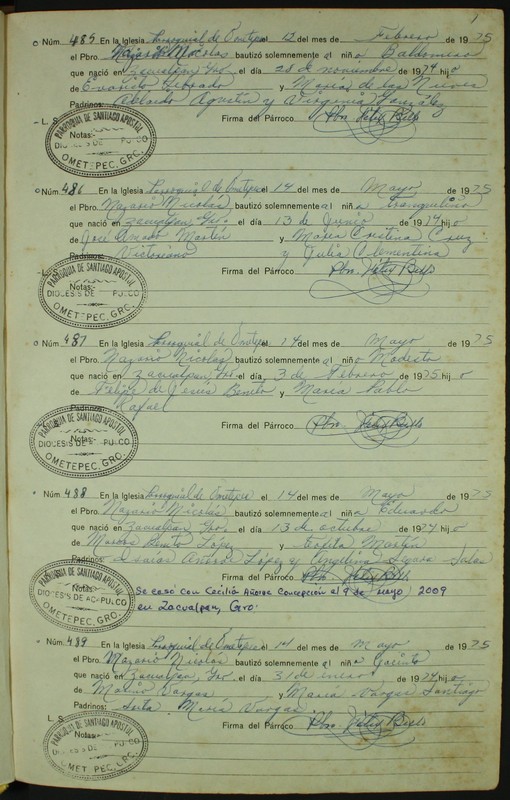 Núm. 485 En la Iglesia Parroquial de Ometepec el 12 del mes de Febrero de 1975
el Pbro. Nazario Nicolas bautizó solemnemente al niño Baldomero
que nació en Zacualpan Gro. el día 28 de noviembre de 1974 hijo
de Evaristo y Maria de las Nieves
Padrinos: Abelardo Agustin y Virginia González
L. S. Firma del Párroco Pbro.
Notas:-
PARROQUIA DE SANTIAGO APOSTOL
DIOCESIS DE ACAPULCO
OMETEPEC, GRO.
Núm. 486 En la Iglesia Parroquial de Ometepec el 14 del mes de Mayo de 1975
el Pbro. Nazario Nicolás bautizó solemnemente al niño Tranquilino
que nació en Zacualpan Gro. el día 13 de Junio de 1974 hijo
de José Amado Martín y Maria Cristina Cruz
Padrinos: Victoriano y Julia Clementina
L. S. Firma del Párroco Pbro.
Notas:-
PARROQUIA DE SANTIAGO APOSTOL
DIOCESIS DE ACAPULCO
OMETEPEC, GRO.
Núm. 487 En la Iglesia Parroquial de Ometepec el 14 del mes de Mayo de 1975
el Pbro. Nazario Nicolas bautizó solemnemente al niño Modesto
que nació en Zacualpan Gro. el día 3 de Febrero de 1975 hijo
de Felipe de Jesús Benito y Maria Pablo
Padrinos: Rafael
Firma del Párroco Pbro.
Notas:-
PARROQUIA DE SANTIAGO APOSTOL
DIOCESIS DE ACAPULCO
OMETEPEC, GRO.
Núm. 488 En la Iglesia Parroquial de Ometepec el 14 del mes de Mayo de 1975
el Pbro. Nazario Nicolás bautizó solemnemente al niño Eduardo
que nació en Zacualpan Gro. el día 13 de octubre de 1974 hijo
de Marcos Benito López y Martín
Padrinos: López y Angelina
Firma del Párroco Pbro.
Notas: Se casó con Cecilia Añorve Concepción el 9 de mayo 2009
en Zacualpan, Gro.
PARROQUIA DE SANTIAGO APOSTOL
DIOCESIS DE ACAPULCO
OMETEPEC, GRO.
Núm. 489 En la Iglesia Parroquial de Ometepec el 14 del mes de Mayo de 1975
el Pbro. Nazario Nicolás bautizó solemnemente al niño Jacinto
que nació en Zacualpan, Gro. el día 31 de enero de 1974 hijo
de Mario Vargas y Maria Vargas Santiago
Padrinos: Maria Vargas
L. S. Firma del Párroco Pbro.
Notas:
PARROQUIA DE SANTIAGO APOSTOL
DIOCESIS DE ACAPULCO
OMETEPEC, GRO.